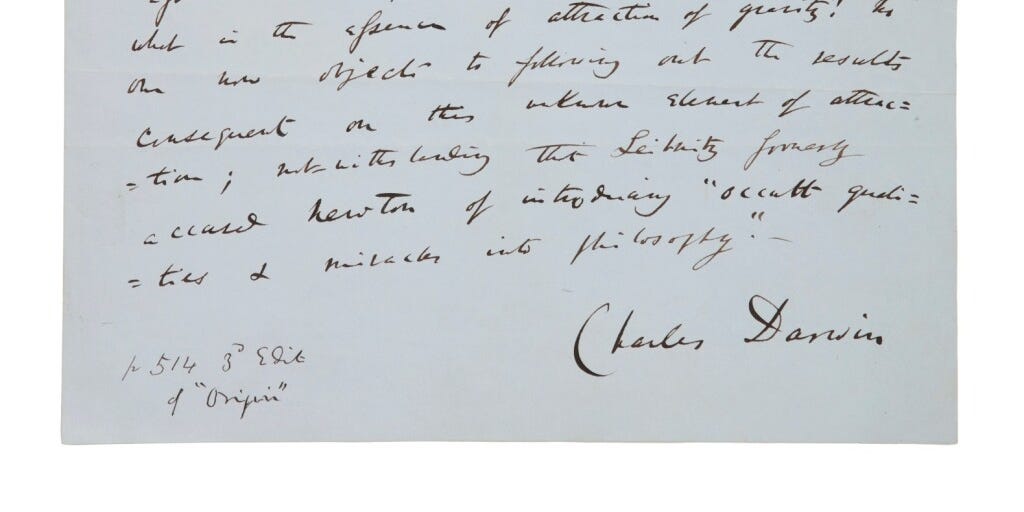 what is the essence of attraction of gravity? No
one now objects to following out the results
consequent on this unknown element of attrac=
=tion; notwithstanding that Leibnitz formerly
accused Newton of introducing "occult quali=
=ties & miracles into philosophy."—
Charles Darwin
p 514 3d Edit
of "Origin"